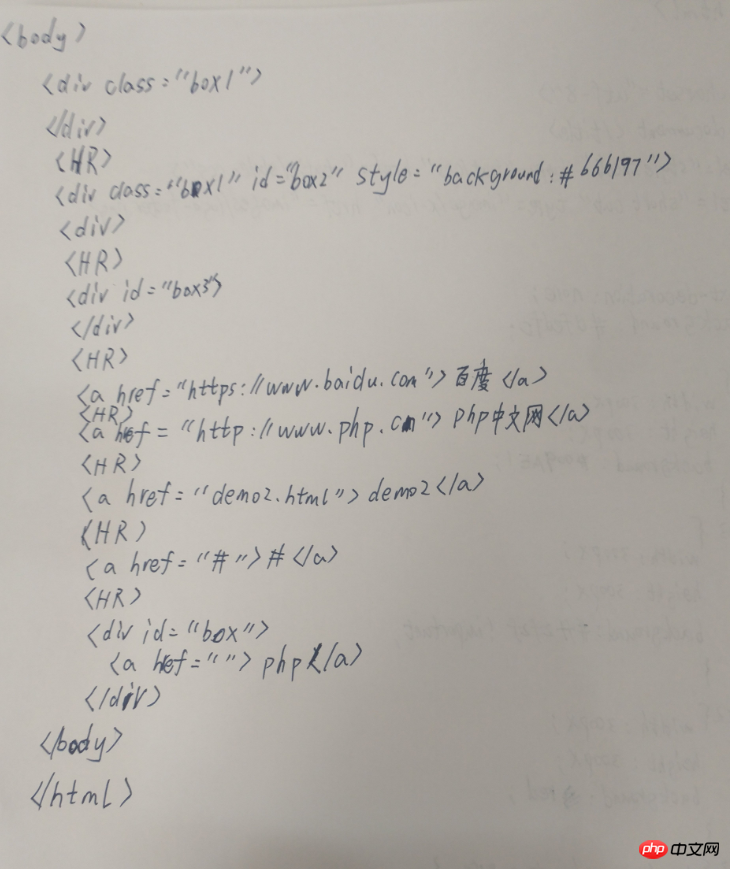 <body>
<div class="box1">
</div>
<HR>
<div class="box1" id="box2" style="background:#666197">
<div>
<HR>
<div id="box3">
</div>
<HR>
<a href="https://www.baidu.com">百度</a>
<HR>
<a href="http://www.php.cn">php中文网</a>
<HR>
<a href="demo2.html">demo2</a>
<HR>
<a href="#">#</a>
<HR>
<div id="box">
<a href="">php</a>
</div>
</body>
</html>
php 中文网